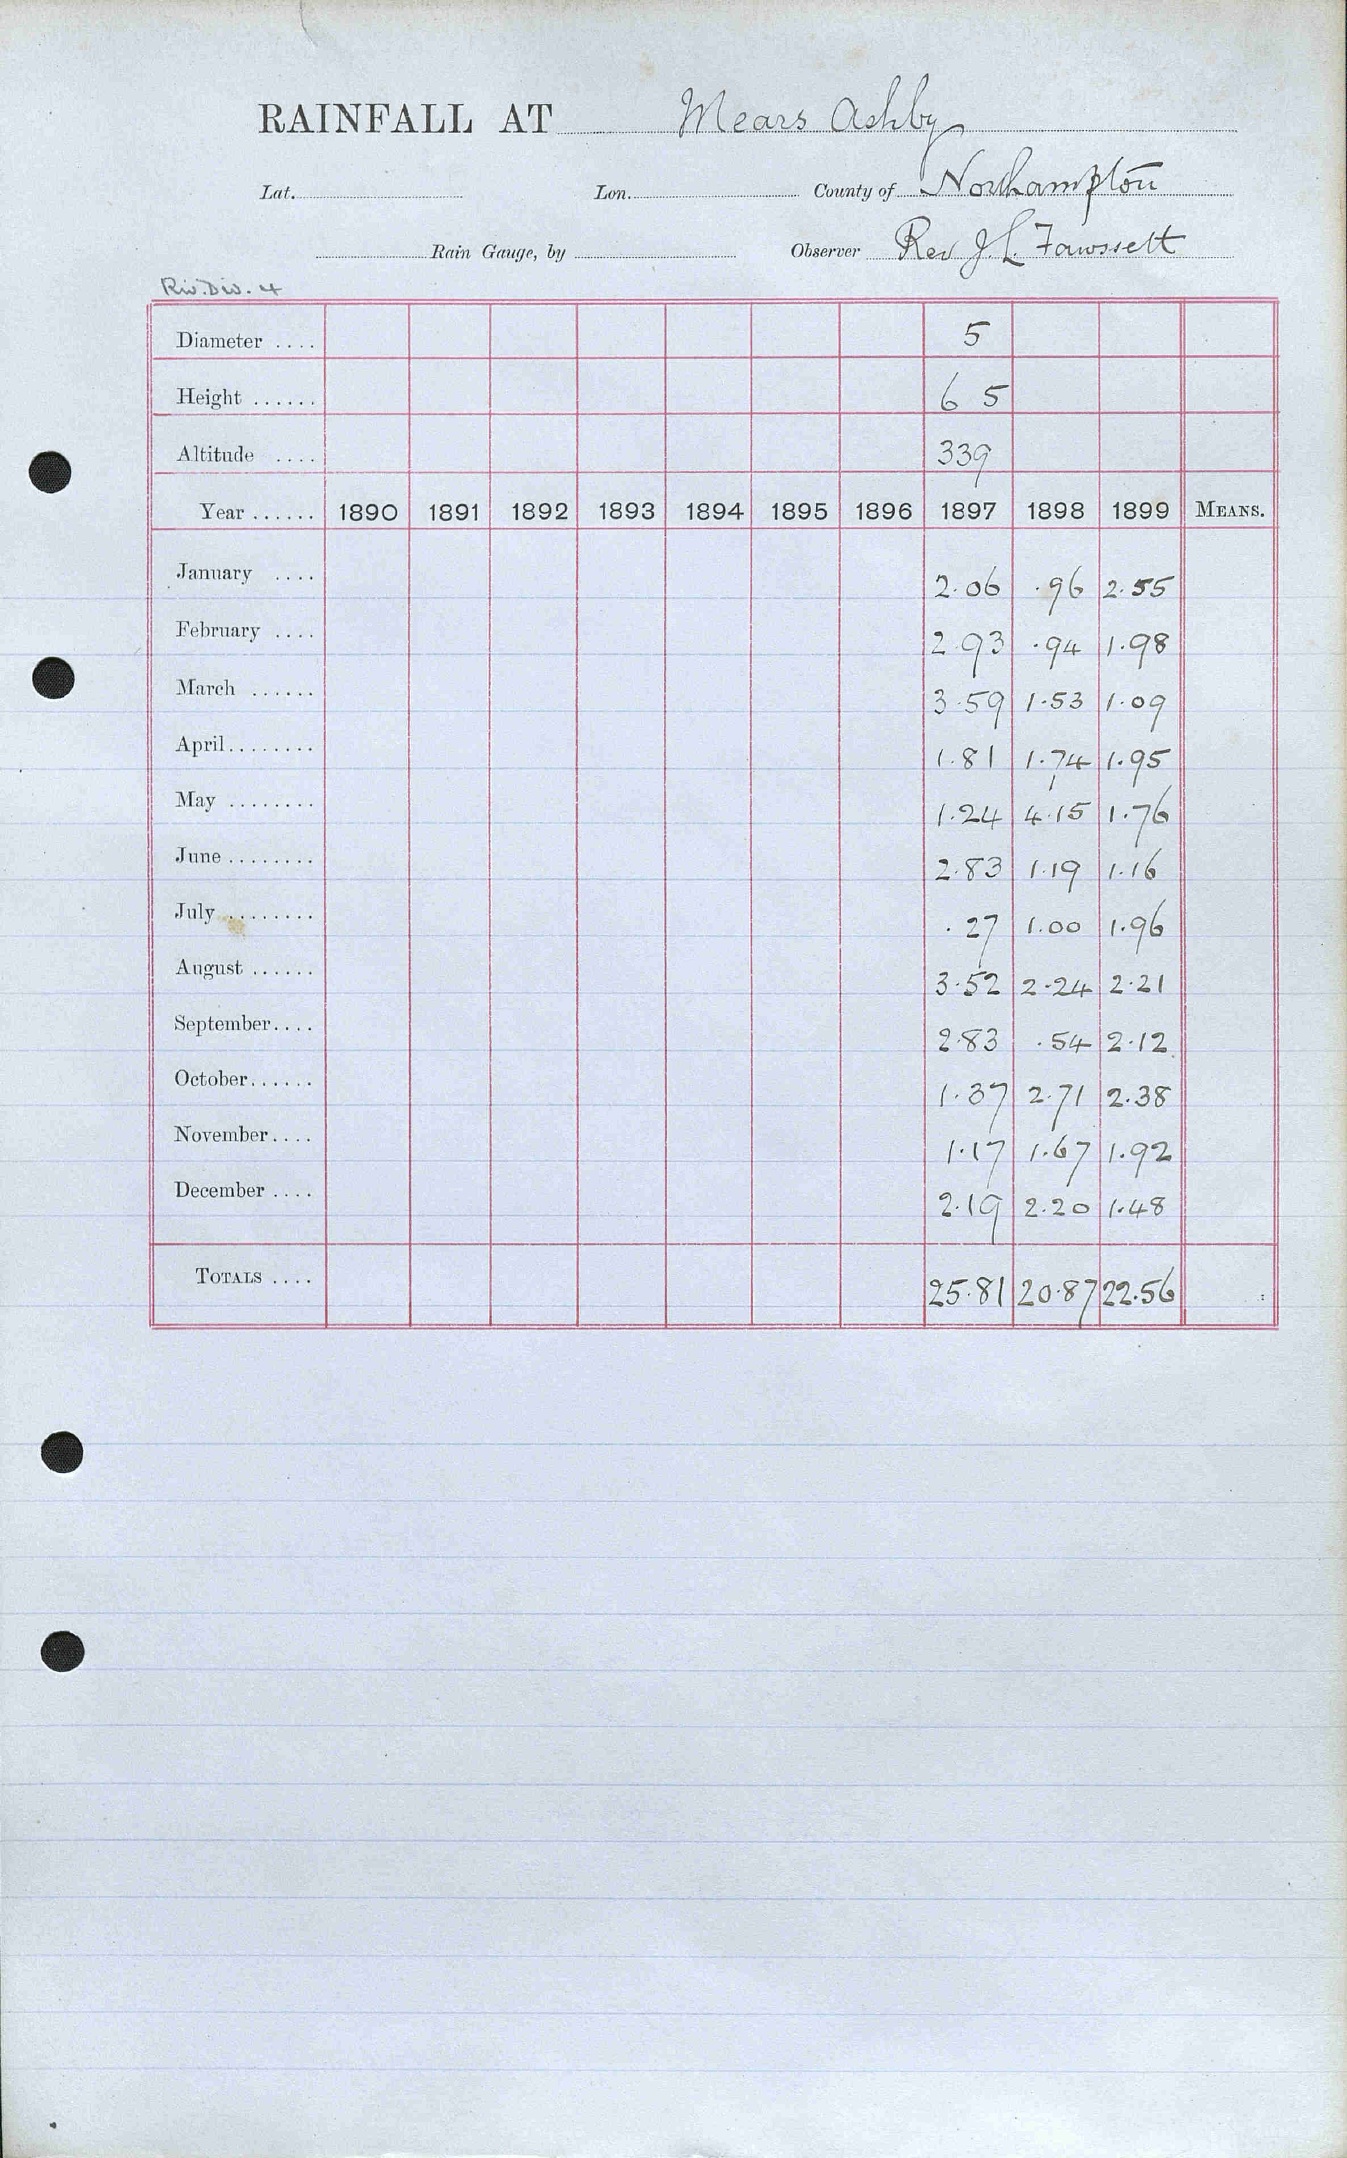 RAINFALL AT Mears Ashby
Lat. Lon. County of Northampton
Rain Gauge, by Observer Rev J. L. Fawssett
Riv. Div. 4
Diameter .... 5
Height ...... 6 5
Altitude .... 339
Year ...... 1890 1891 1892 1893 1894 1895 1896 1897 1898 1899 MEANS.
January .... 2.06 .96 2.55
February .... 2.93 .94 1.98
March ...... 3.59 1.53 1.09
April........ 1.81 1.74 1.95
May ........ 1.24 4.15 1.76
June ........ 2.83 1.19 1.16
July ........ .27 1.00 1.96
August ...... 3.52 2.24 2.21
September.... 2.83 .54 2.12
October...... 1.37 2.71 2.38
November.... 1.17 1.67 1.92
December .... 2.19 2.20 1.48
TOTALS .... 25.81 20.87 22.56